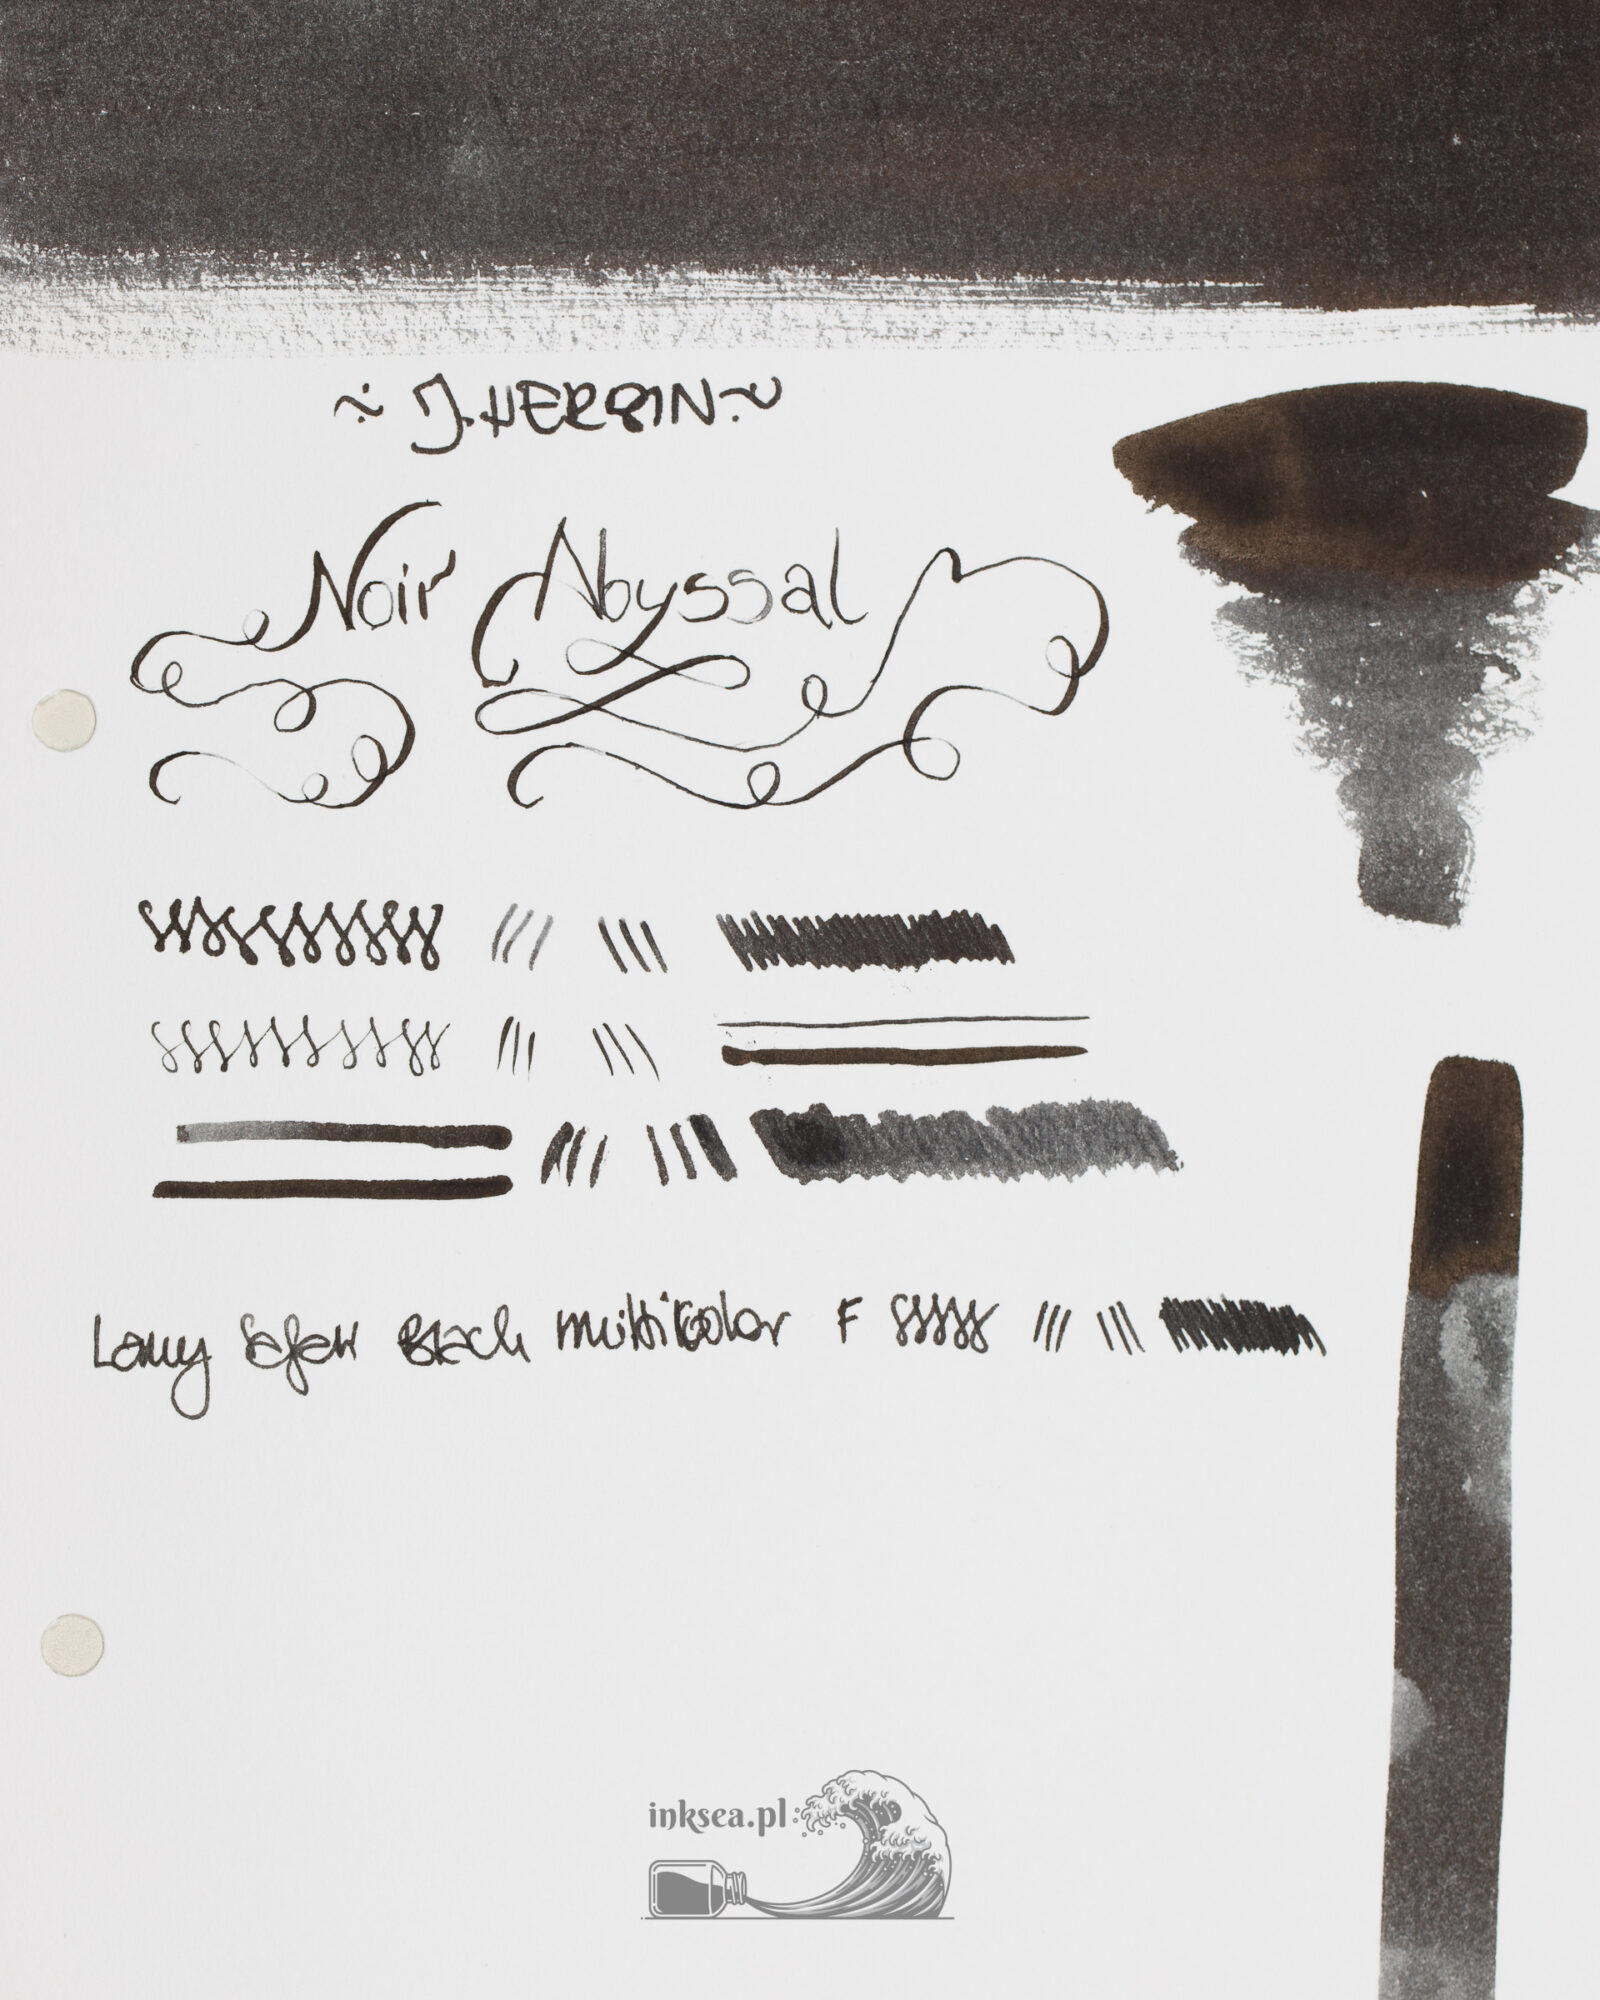 ~ J. HERBIN ~
Noir Abyssal
Lamy Safari Black multikolor F
inksea.pl